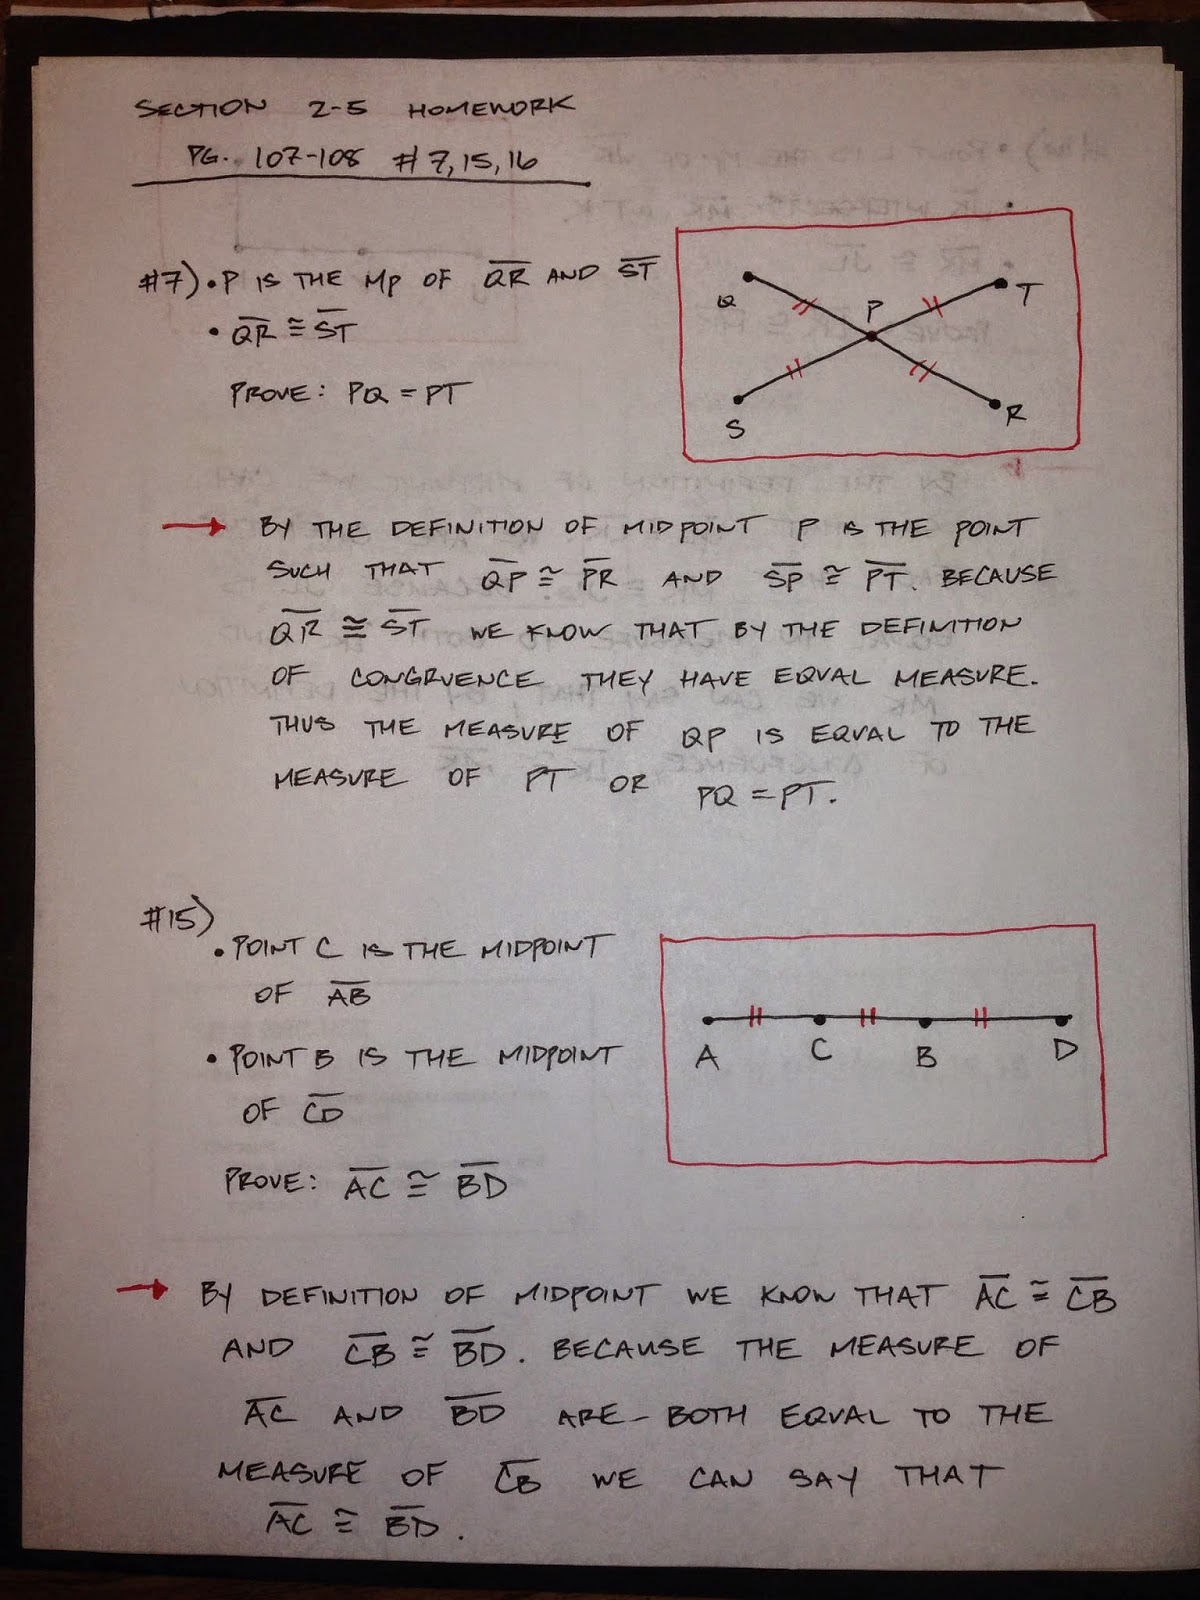 SECTION 2-5 HOMEWORK
PG. 107-108 #7,15,16
#7) • P IS THE MP OF Q̅R̅ AND S̅T̅
• Q̅R̅ ≅ S̅T̅
PROVE: PQ = PT
Q
P
T
S
R
→ BY THE DEFINITION OF MIDPOINT P IS THE POINT
SUCH THAT Q̅P̅ ≅ P̅R̅ AND S̅P̅ ≅ P̅T̅. BECAUSE
Q̅R̅ ≅ S̅T̅ WE KNOW THAT BY THE DEFINITION
OF CONGRUENCE THEY HAVE EQUAL MEASURE.
THUS THE MEASURE OF QP IS EQUAL TO THE
MEASURE OF PT OR PQ = PT.
#15)
• POINT C IS THE MIDPOINT
OF A̅B̅
• POINT B IS THE MIDPOINT
OF C̅D̅
PROVE: A̅C̅ ≅ B̅D̅
A C B D
→ BY DEFINITION OF MIDPOINT WE KNOW THAT A̅C̅ ≅ C̅B̅
AND C̅B̅ ≅ B̅D̅. BECAUSE THE MEASURE OF
A̅C̅ AND B̅D̅ ARE BOTH EQUAL TO THE
MEASURE OF C̅B̅ WE CAN SAY THAT
A̅C̅ ≅ B̅D̅.